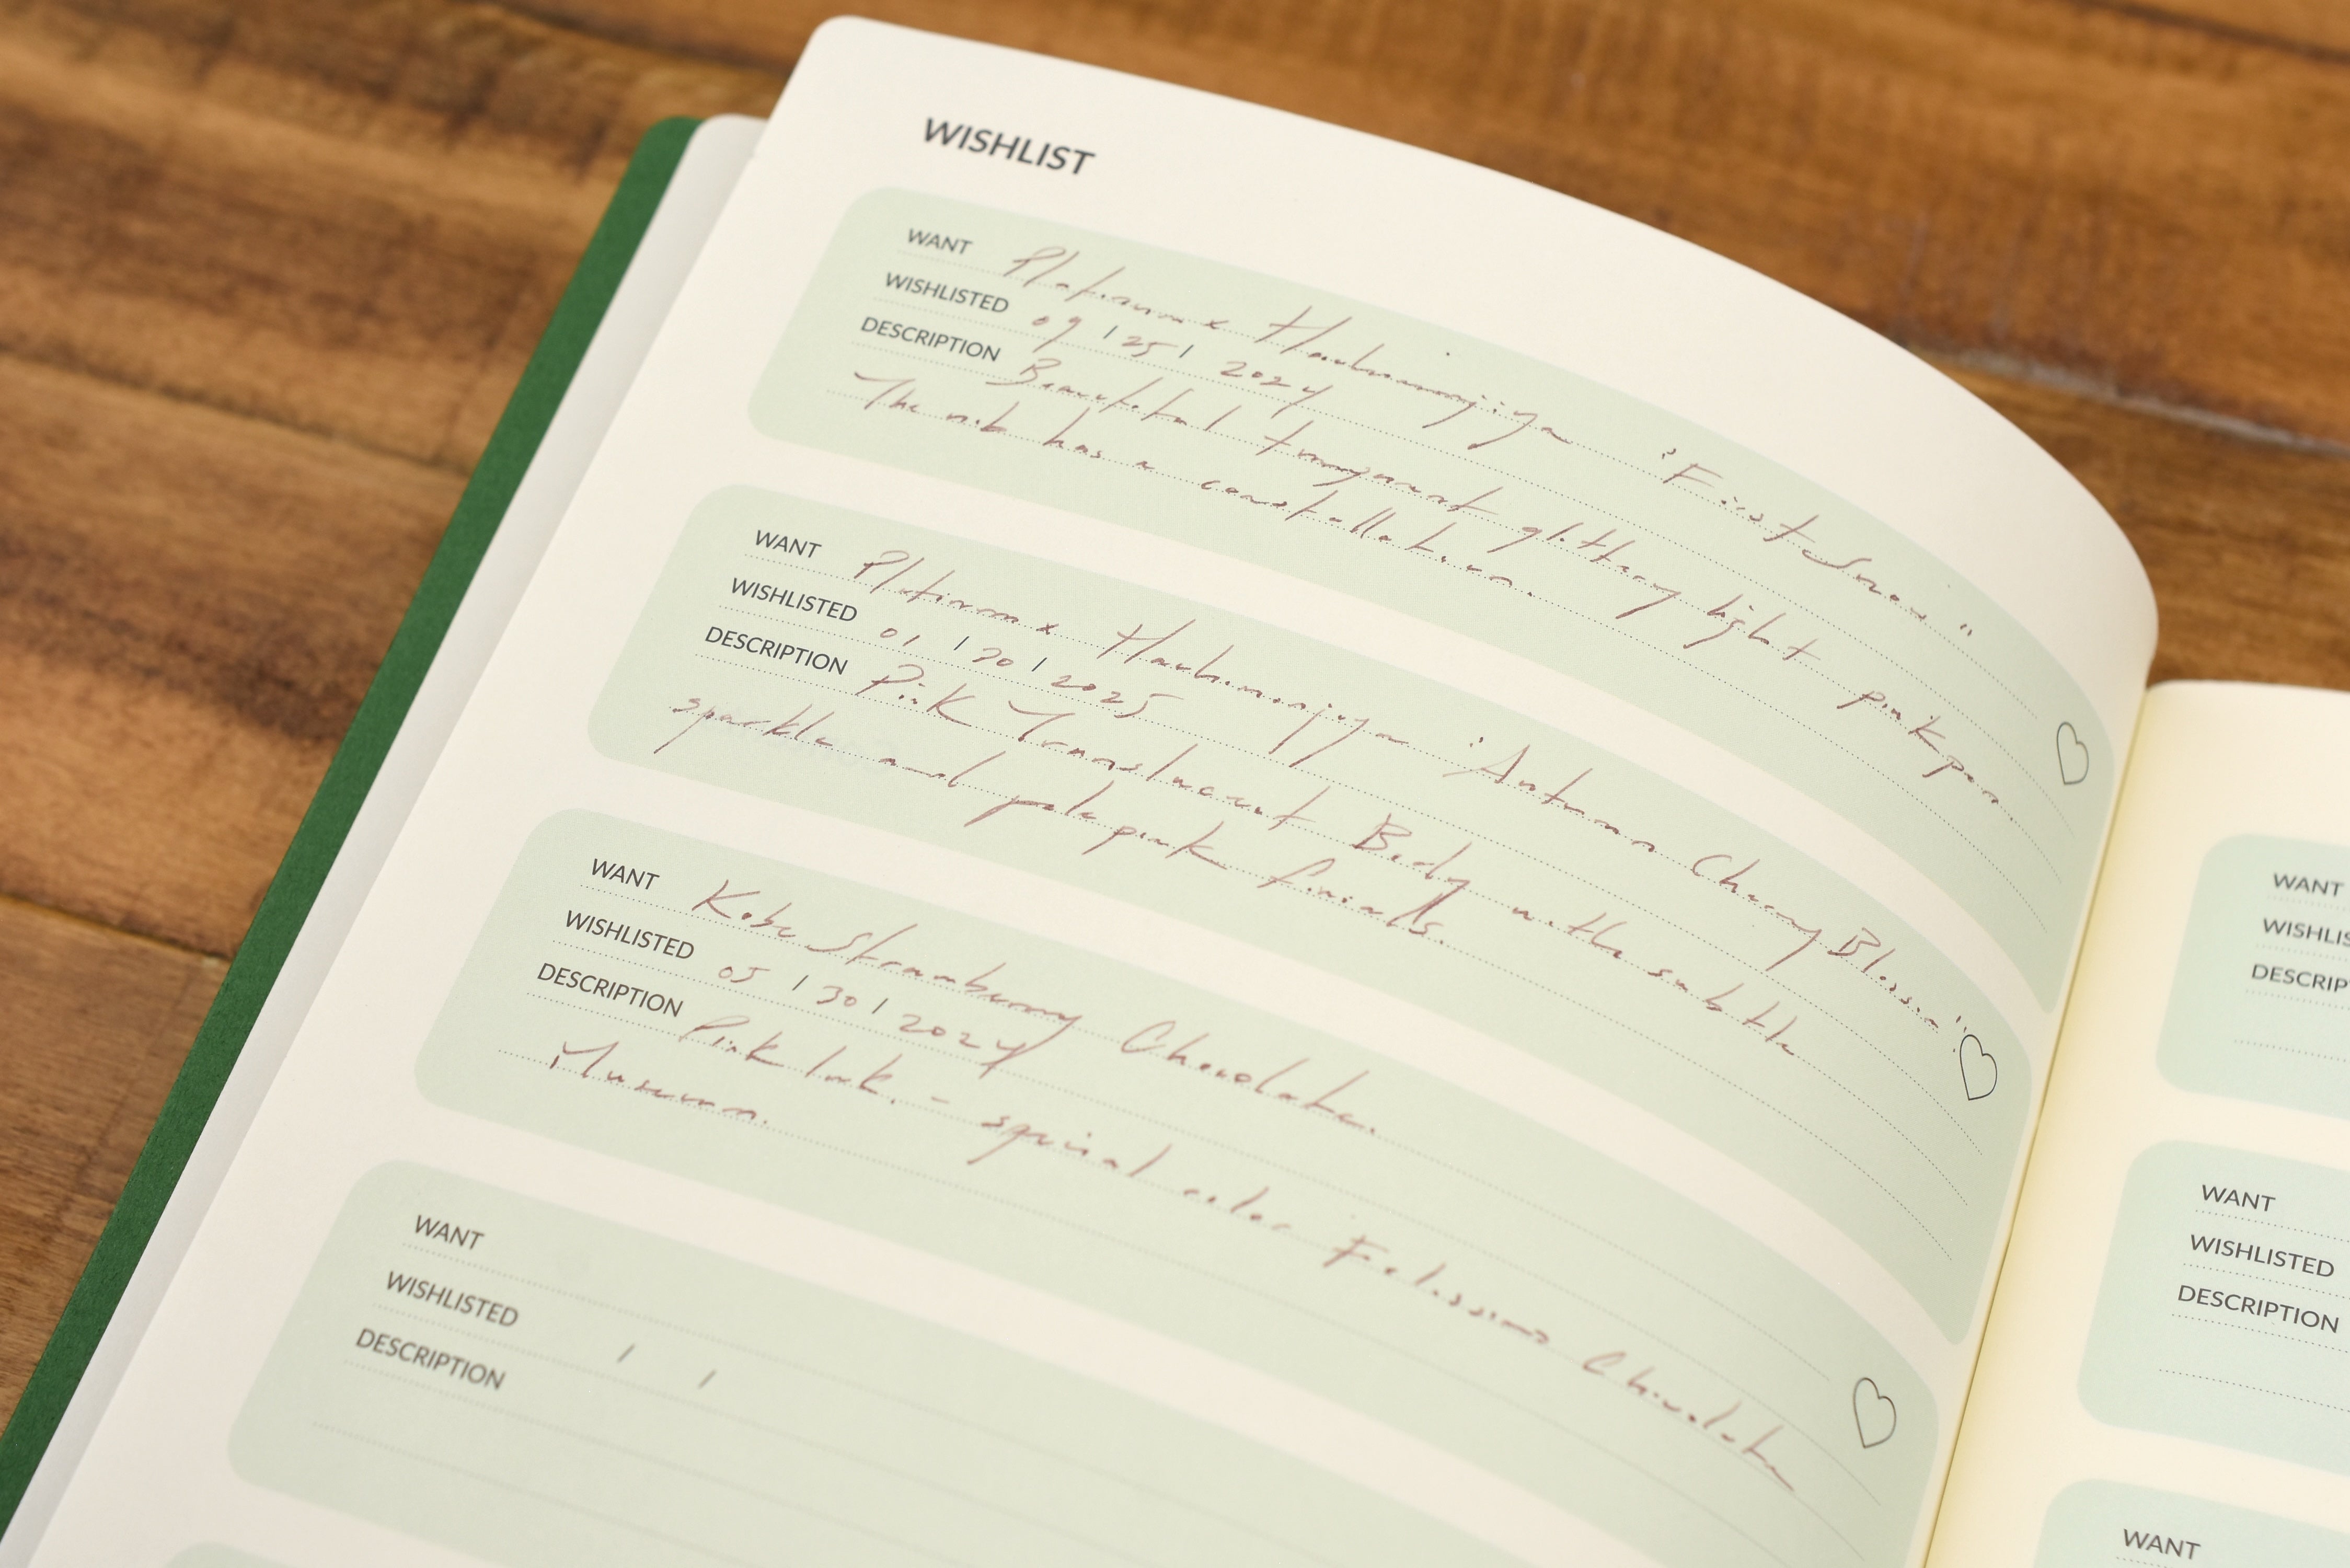 WISHLIST
WANT Platinum x Hachimonjiya "First Snow"
WISHLISTED 09 / 25 / 2024
DESCRIPTION Beautiful transparent glittery light pink pen
The nib has a constellation.
WANT Platinum x Hachimonjiya "Autumn Cherry Blossom"
WISHLISTED 01 / 20 / 2025
DESCRIPTION Pink Translucent Body with subtle
sparkle and pale pink finials.
WANT Kobe Strawberry Chocolate.
WISHLISTED 05 / 30 / 2024
DESCRIPTION Pink Ink. - special color Felissimo Chocolate
Museum.
WANT
WISHLISTED / /
DESCRIPTION
WANT
DESCRIP
WANT
WISHLISTED
DESCRIPTION
WANT